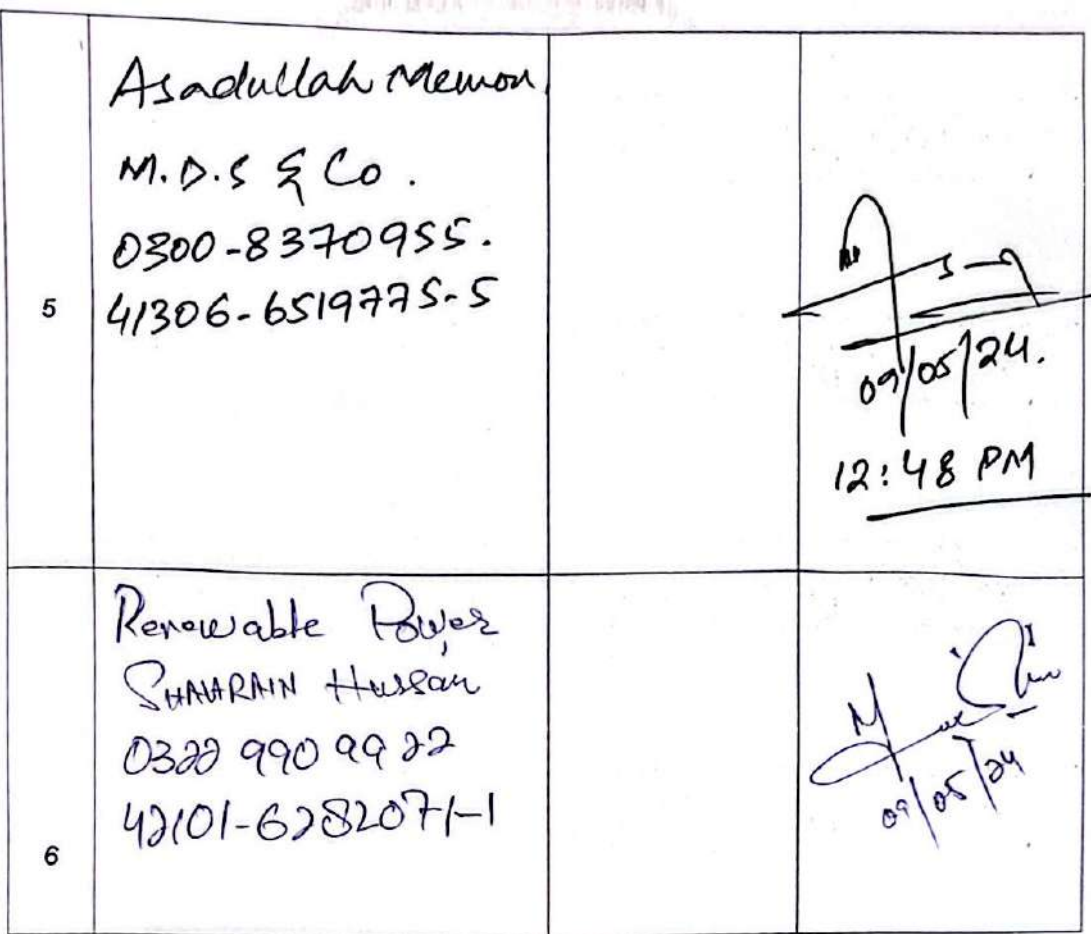 5
Asadullah Memon
M.D.S & Co.
0300-8370955.
41306-6519775-5
09/05/24.
12:48 PM
6
Renewable Power
Hussain
0322 990 99 22
42101-6282071-1
09/05/24